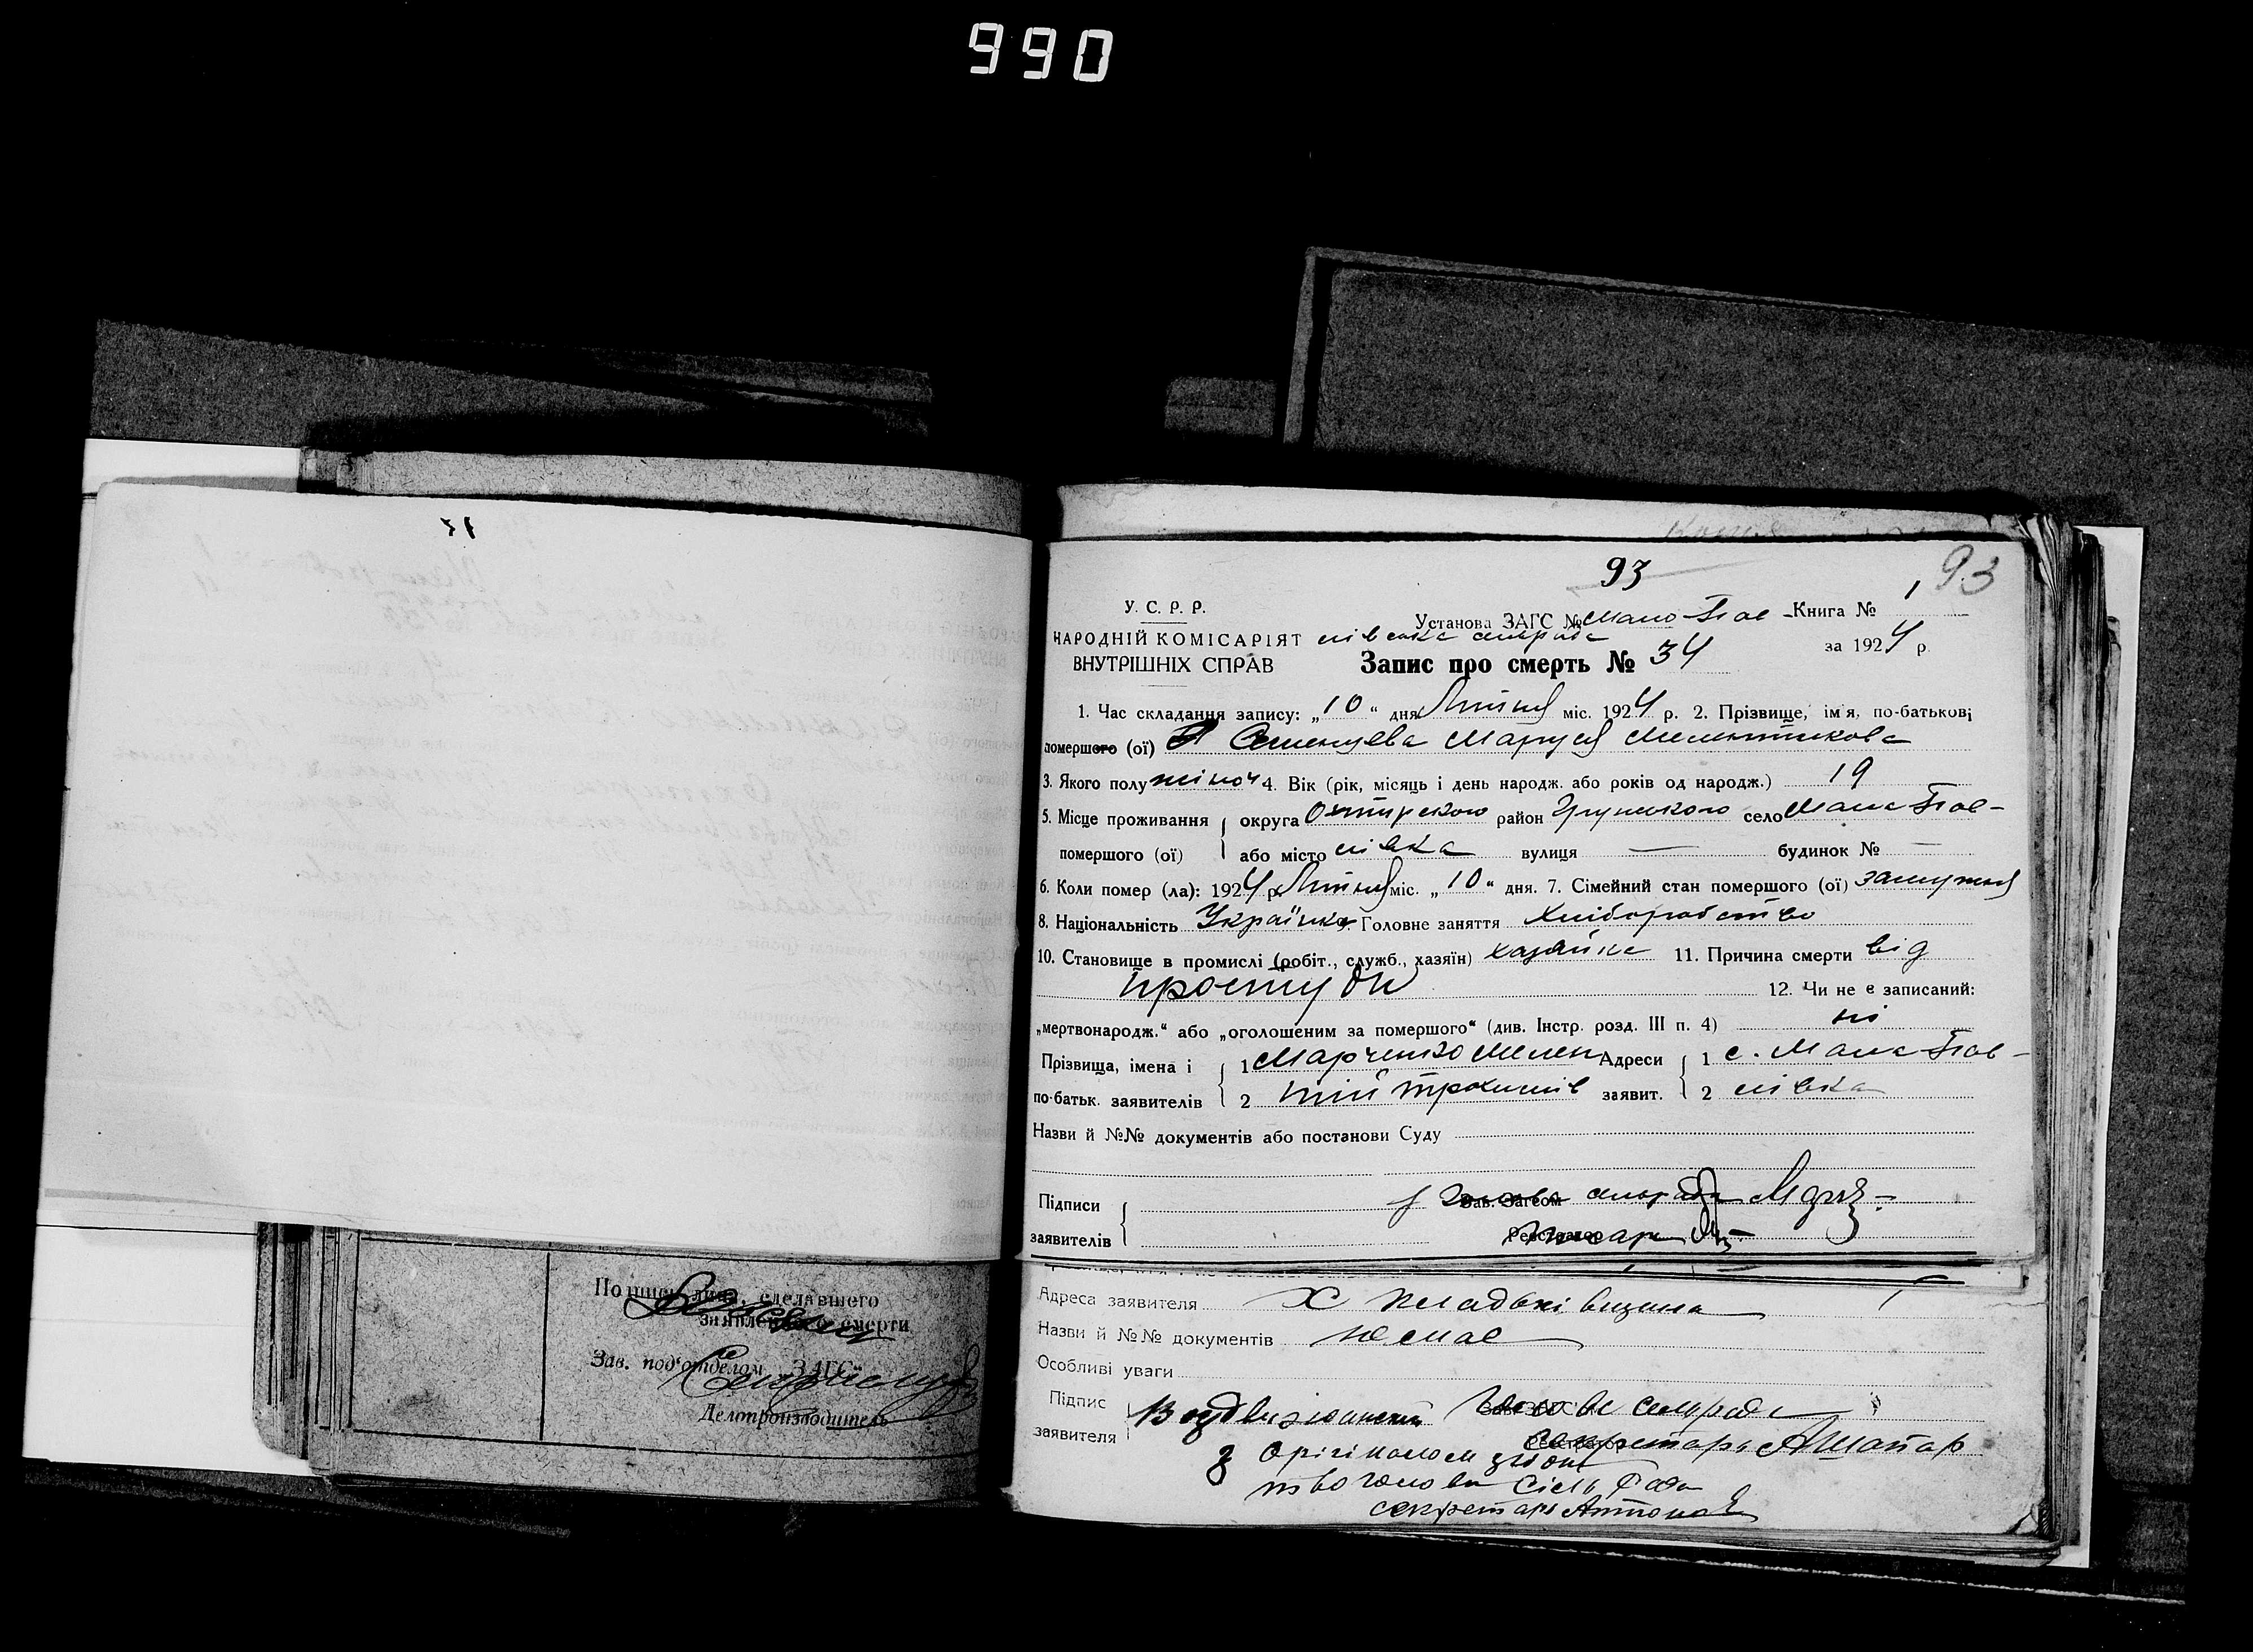 990
93
93
У. С. Р. Р.
Установа ЗАГС № Мало-Пав- Книга № 1
НАРОДНІЙ КОМІСАРІЯТ лівська сільрада
за 1924 р.
ВНУТРІШНІХ СПРАВ Запис про смерть № 34
1. Час складання запису: „10“ дня Липня міс. 1924 р. 2. Прізвище, імя, по-батькові
помершого (ої) Семенцева Маруся Мелентикова
3. Якого полу жіноч 4. Вік (рік, місяць і день народж. або років од народж.) 19
5. Місце проживання округа Охтирского район Грунського село Мала Пав-
помершого (ої) або місто лівка вулиця — будинок № —
6. Коли помер (ла): 1924 р. Липня міс. „10“ дня. 7. Сімейний стан помершого (ої) замужня
8. Національність Українка 9. Головне заняття Хліборобство
10. Становище в промислі (робіт., служб., хазяїн) хазяйка 11. Причина смерти від
простуди 12. Чи не є записаний:
„мертвонародж.“ або „оголошеним за помершого“ (див. Інстр. розд. III п. 4) ні
Прізвища, імена і 1 Марченко Мелен Адреси 1 с. Мала Пав-
по-батьк. заявителів 2 тій Трохимів заявит. 2 лівка
Назви й №№ документів або постанови Суду
Підписи Зав. Загсом Голова сільради
заявителів Реєстратор Писар
Подпись лица, сделавшего
заявление о смерти
Зав. под'отделом ЗАГС
Делопроизводитель
Адреса заявителя Х
Назви й №№ документів немає
Особливі уваги
Підпис Воздвиженский Голова сільради
заявителя секретарь
З орігіналом згідно
голови Сіль Ради
секретарь